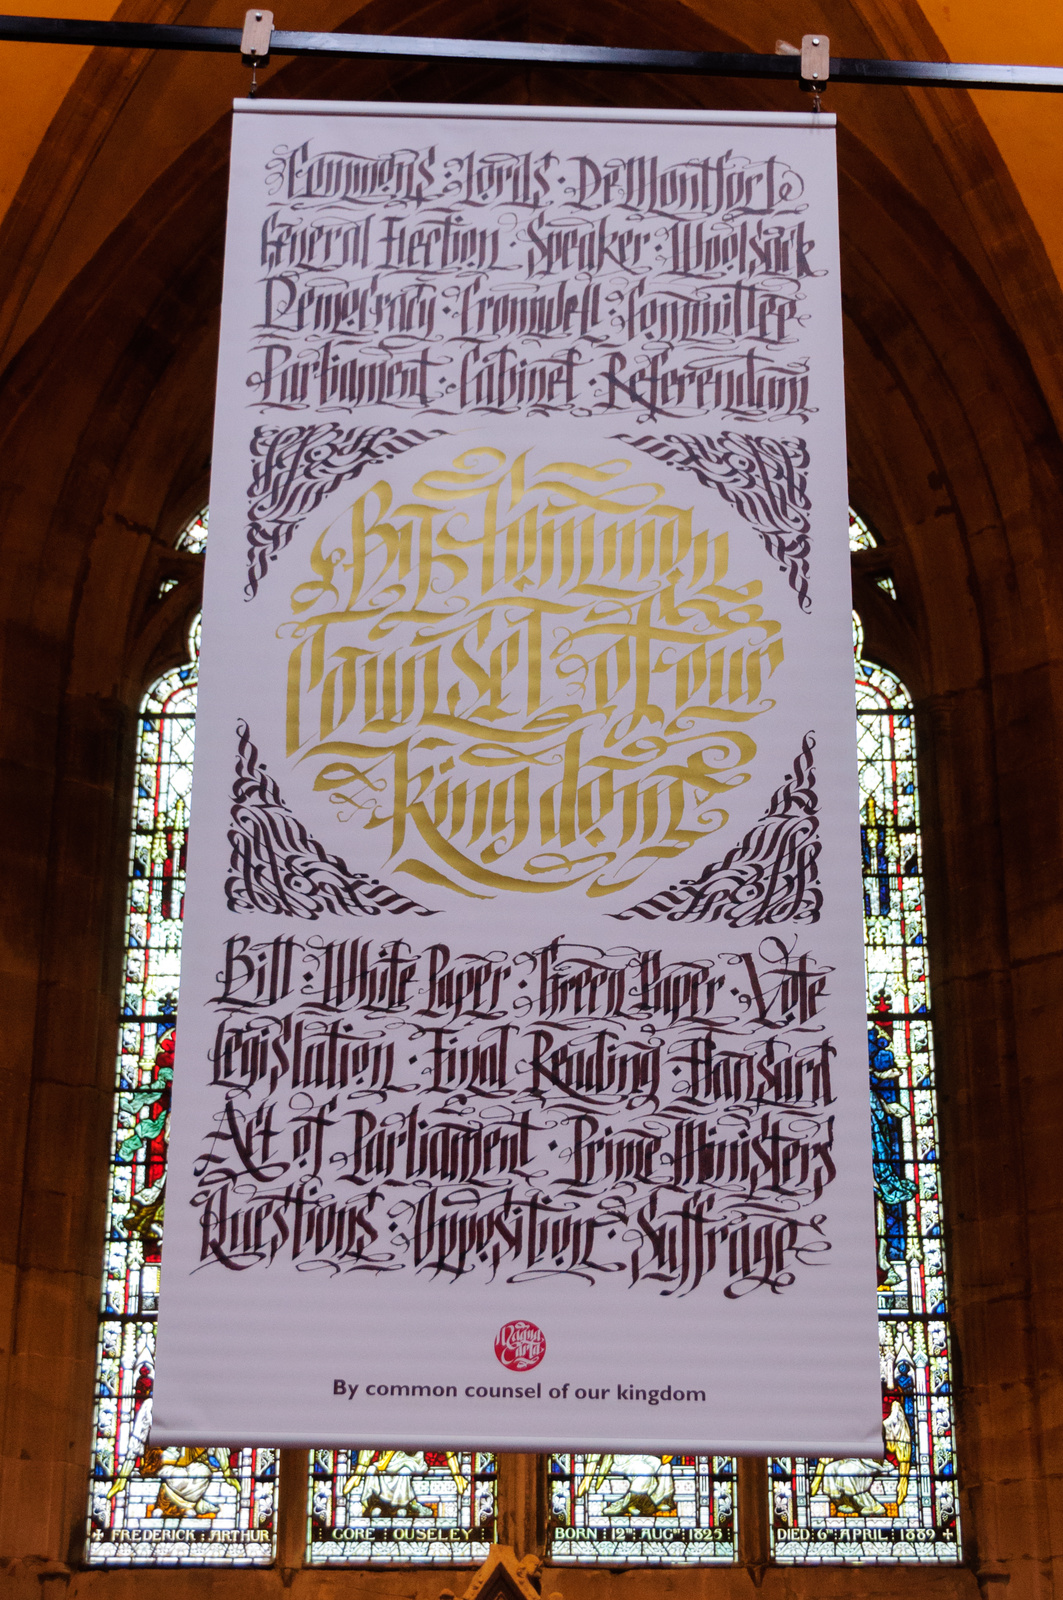 Commons · Lords · De Montfort
General Election · Speaker · Woolsack
Democracy · Cromwell · Committee
Parliament · Cabinet · Referendum
By Common
Counsel of our
kingdom
Bill · White Paper · Green Paper · Vote
Legislation · Final Reading · Hansard
Act of Parliament · Prime Ministers
Questions · Opposition · Suffrage
Magna
Carta
By common counsel of our kingdom
+ FREDERICK : ARTHUR
: GORE : OUSELEY :
BORN : 12TH AUGST 1825
DIED 6TH APRIL : 1889 +